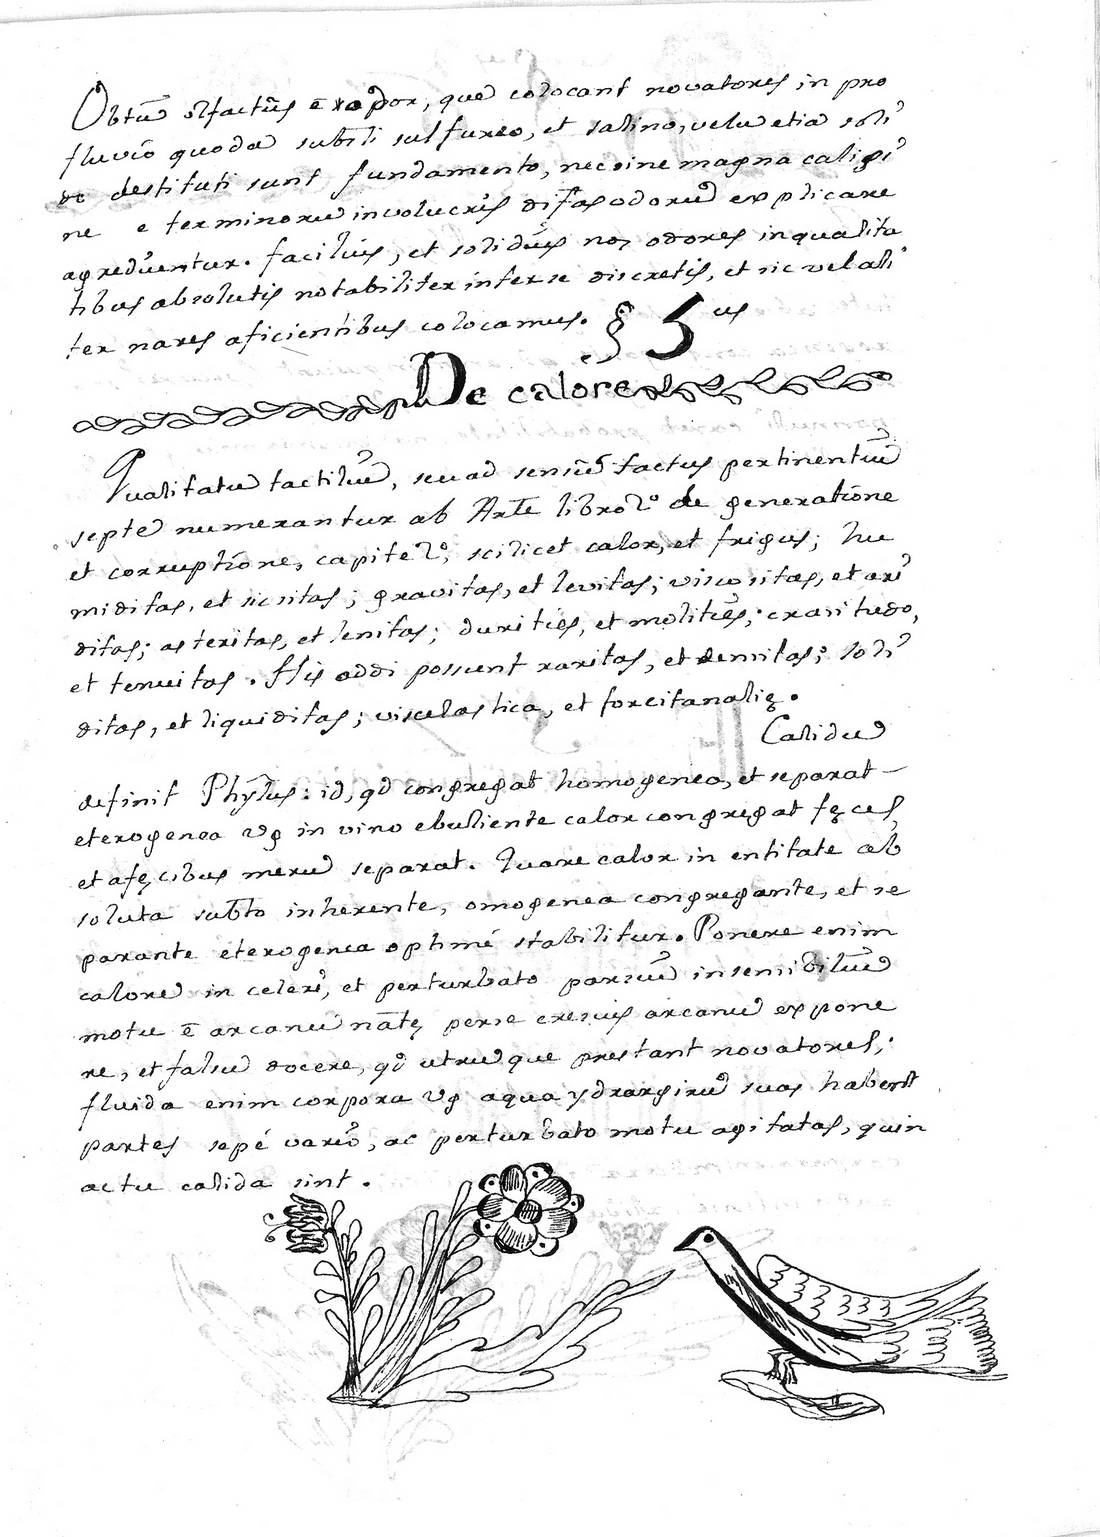 Obtũ olfactũs ē vapor, que colocant novatores in pro
fluvio quodã subtili sulfureo, et salino, velu etiã soli
do destituti sunt fundamento, nec sine magna caligi
ne e terminorũ involucris difas odorũ explicare
agrediuntur. facilius, et solidius nos odores in qualita
tibus absolutis notabiliter inter se discretis, et sic vel ali
ter nares aficientibus colocamus. § 5us
De calore
Qualitatũ tactiliũ, seu ad sensũ tactus pertinentiũ
septẽ numerantur ab Arte libro 2º de generatione
et corruptione, capite 2º, scilicet calor, et frigus; hu
miditas, et sicsitas; gravitas, et levitas; viscositas, et ari
ditas; asteritas, et lenitas; durities, et molities; crasitudo,
et tenuitas. His addi possunt raritas, et densitas; soli
ditas, et liquiditas; vis elastica, et
Calidũ
definit Phylus: id, qd congregat homogenea, et separat
eterogenea vg in vino ebuliente calor congregat fęces,
et a fęcibus merũ separat. Quare calor in entitate ab
soluta subto inherente, omogenea congregante, et se
parante eterogenea optimé stabilitur. Ponere enim
calorẽ in celeri, et perturbato parsiũ insensibiliũ
motu ē arcanũ natę per se arcanũ expone
re, et falsũ docere, qd utrũque prestant novatores;
fluida enim corpora vg aqua ydrargirũ suas habent
partes sepé vario, ac perturbato motu agitatas, quin
actu calida sint.